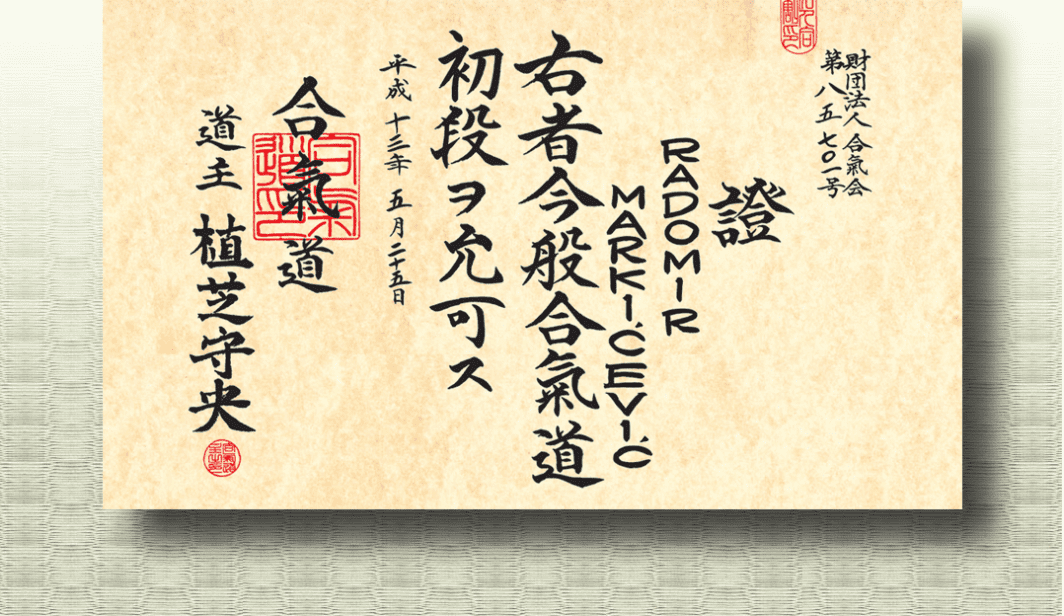 財団法人 合氣会
第八五七〇一号
證
RADOMIR
MARKIĆEVIĆ
右者今般合氣道
初段ヲ允可ス
平成十三年五月二十五日
合氣道
道主 植芝守央